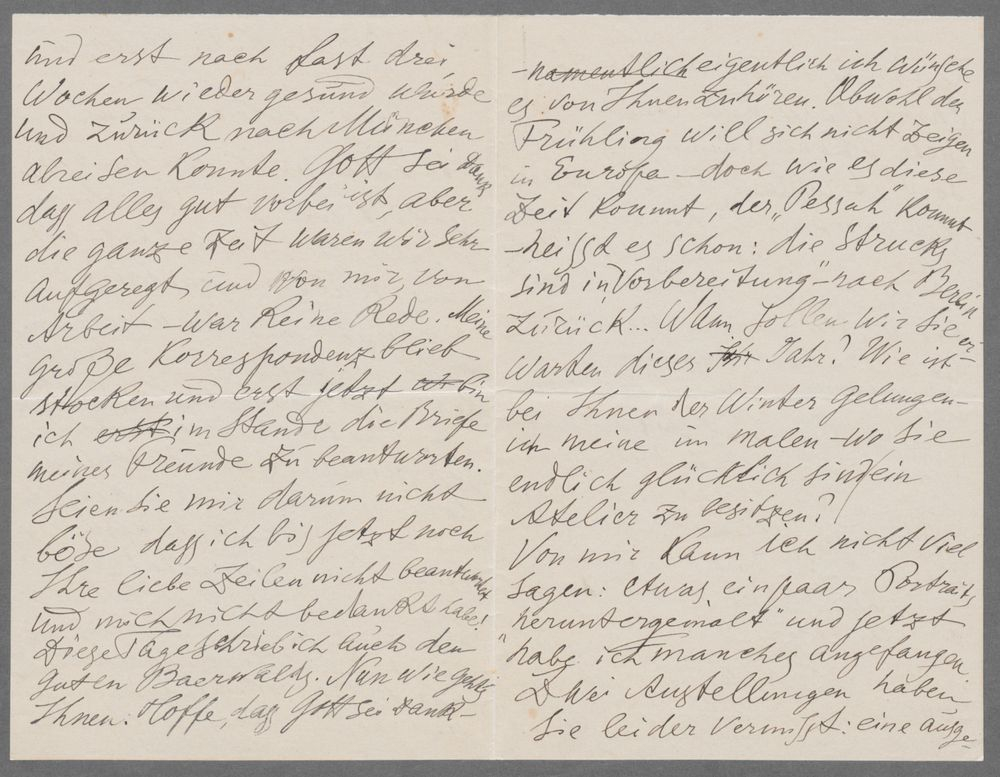 und erst nach fast drei
Wochen wieder gesund wurde
und zurück nach München
abreisen konnte. Gott sei Dank
dass alles gut vorbei ist, aber
die ganze Zeit waren wir sehr
aufgeregt und von mir, von
Arbeit – war keine Rede. Meine
große Korrespondenz blieb
stocken und erst jetzt bin
ich erst im Stande die Briefe
meiner Freunde zu beantworten.
Seien Sie mir darum nicht
böse dass ich bis jetzt noch
Ihre liebe Zeilen nicht beantwortet
und mich nicht bedankt habe!
Diese Tage schrieb ich auch den
guten Baerwalds. Nun wie gehts
Ihnen: Hoffe, dass Gott sei Dank –
– namentlich eigentlich ich wünsche
es von Ihnen zu hören. Obwohl der
Frühling will sich nicht zeigen
in Europa – doch wie es diese
Zeit kommt, der „Pessah" kommt
– heisst es schon: die Strucks
sind in „Vorbereitung" – nach Berlin
zurück... Wann sollen wir Sie er-
warten dieses Jahr? Wie ist
bei Ihnen der Winter gelungen –
ich meine im malen – wo Sie
endlich glücklich sind ein
Atelier zu besitzen?
Von mir kann ich nicht viel
sagen: etwas ein paar Portraits
„heruntergemalt" und jetzt
habe ich manches angefangen.
Zwei Austellungen haben
Sie leider vermisst: eine ausge-